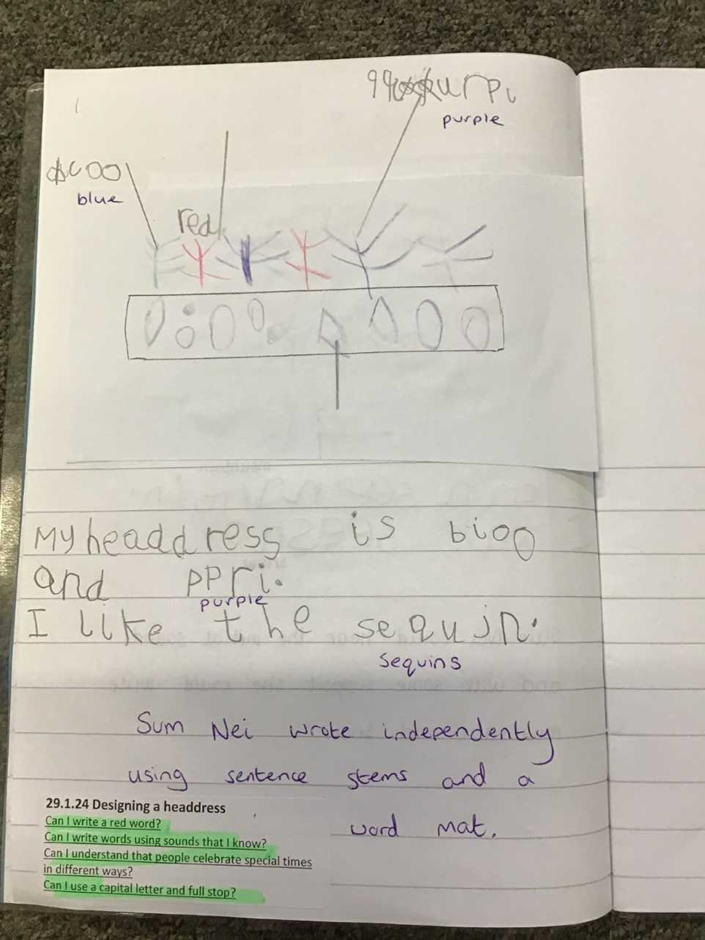 purple
blue
red
My headdress is bloo
and ppri.
purple
I like the sequin.
sequins
Sum Nei wrote independently
using sentence stems and a
word mat.
29.1.24 Designing a headdress
Can I write a red word?
Can I write words using sounds that I know?
Can I understand that people celebrate special times
in different ways?
Can I use a capital letter and full stop?